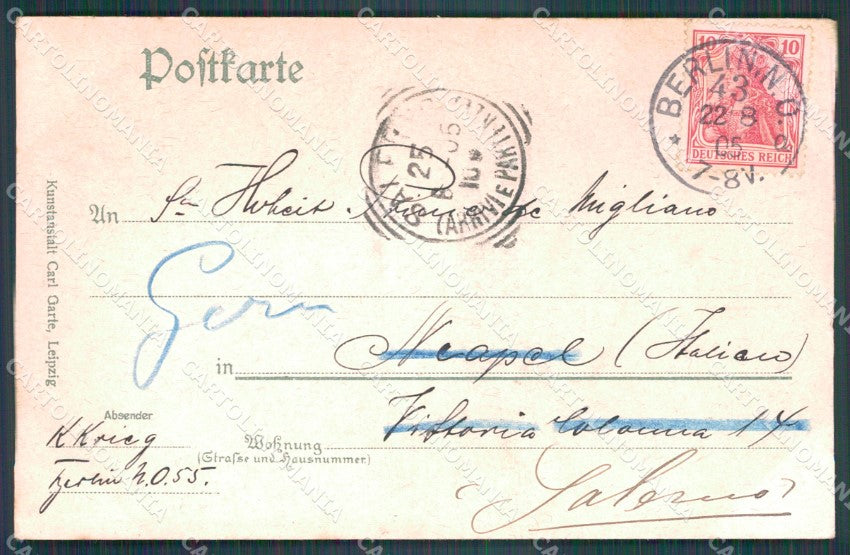 Postkarte
10 10
DEUTSCHES REICH
BERLIN N.O.
43
22 8
05
7-8V.
25
05
10
(ARRIVI E PARTENZE)
An Sr. Hoheit de Migliano
Gern
in Neapel (Italien)
Vittoria Colonna 14
Wohnung
(Strasse und Hausnummer)
Salerno
Absender
K Krieg
Berlin N.O.55.
Kunstanstalt Carl Garte, Leipzig
CARTOLINOMANIA